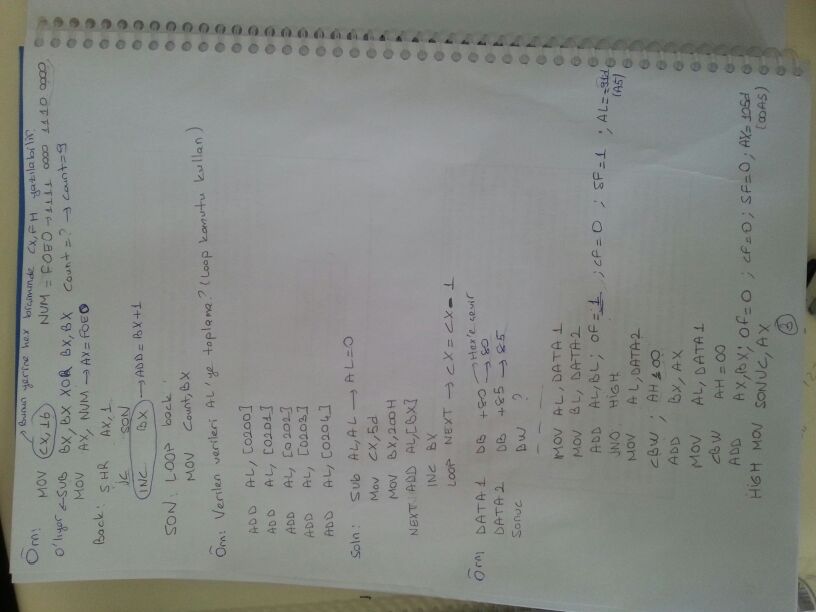 Bunun yerine hex biçiminde CX,FH yazılabilir.
Örn: MOV CX,16 NUM = F0E0 → 1111 0000 1110 0000
0'lıyor ← SUB BX, BX XOR BX, BX Count = ? → Count = 9
MOV AX, NUM → AX = F0E0
Back: SHR AX, 1
JC SON
INC BX → ADD = BX+1
SON: LOOP back
MOV Count, BX
Örn: Verilen verileri AL'ye toplama? (Loop komutu kullan)
ADD AL, [0200]
ADD AL, [0201]
ADD AL, [0202]
ADD AL, [0203]
ADD AL, [0204]
Soln: SUB AL, AL → AL=0
MOV CX, 5d
MOV BX, 200H
NEXT: ADD AL, [BX]
INC BX
LOOP NEXT → CX = CX - 1
Örn; DATA1 DB +80 → Hex'e çevir 80
DATA2 DB +85 → 85
SONUC DW ?
MOV AL, DATA1
MOV BL, DATA2
ADD AL, BL; OF = 1 ; CF = 0 ; SF = 1 ; AL = (A5)
JNO HIGH
MOV AL, DATA2
CBW ; AH = 00
ADD BX, AX
MOV AL, DATA1
CBW AH = 00
ADD AX, BX; OF = 0 ; CF = 0 ; SF = 0 ; AX = 165d (00A5)
HIGH MOV SONUC, AX